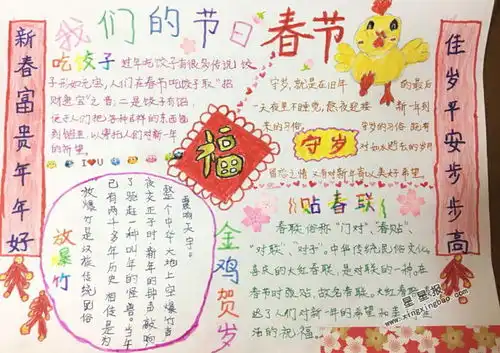 我们的节日 春节
新春富贵年年好
佳岁平安步步高
吃饺子
过年吃饺子有很多传说,饺
子形如元宝,人们在春节吃饺子取"招
财进宝"之音,二是饺子有馅,
便于人们把各种吉祥的东西包
到馅里,以寄托人们对新年
的祈望。
I U
守岁,就是在旧年
的最后
一天夜里不睡觉,熬夜迎接
新一年到
来的习俗,
守岁的习俗,既有
守岁
对如水逝去的岁月
留恋之情,又有对新年寄以美好希望。
福
贴春联
春联俗称"门对"、"春贴"、
"对联"、"对子"。中华传统民俗文化。
喜庆的大红春联,是对联的一种。在
春节时张贴,故名春联。大红春联
达了人们对新年的希望和美
活的祝福。
金鸡贺岁
放爆竹
放爆竹是汉族传统民俗
已有两千多年历史,相传是为
了驱赶一种叫年的怪兽。当午
夜交正子时,新年的钟声敲响
整个中华大地上空,爆竹声
震响天宇。
星星报
www.xingxingbao.com